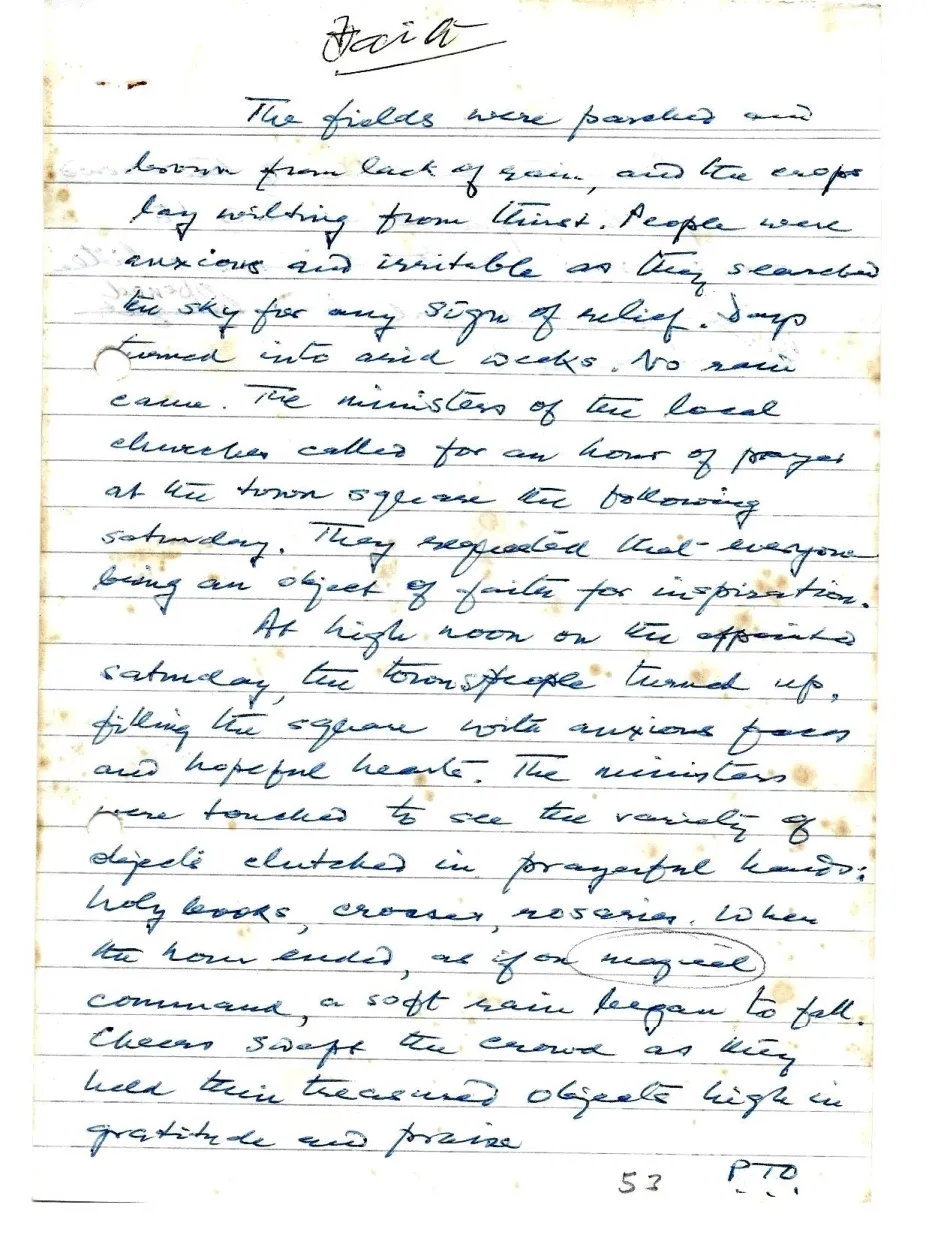 Faith
The fields were parched and
brown from lack of rain, and the crops
lay wilting from thirst. People were
anxious and irritable as they searched
the sky for any sign of relief. Days
turned into arid weeks. No rain
came. The ministers of the local
churches called for an hour of prayer
at the town square the following
saturday. They requested that everyone
bring an object of faith for inspiration.
At high noon on the appointed
saturday, the townspeople turned up,
filling the square with anxious faces
and hopeful hearts. The ministers
were touched to see the variety of
objects clutched in prayerful hands:
holy books, crosses, rosaries. When
the hour ended, as if on magical
command, a soft rain began to fall.
Cheers swept the crowd as they
held their treasured objects high in
gratitude and praise
53 PTO